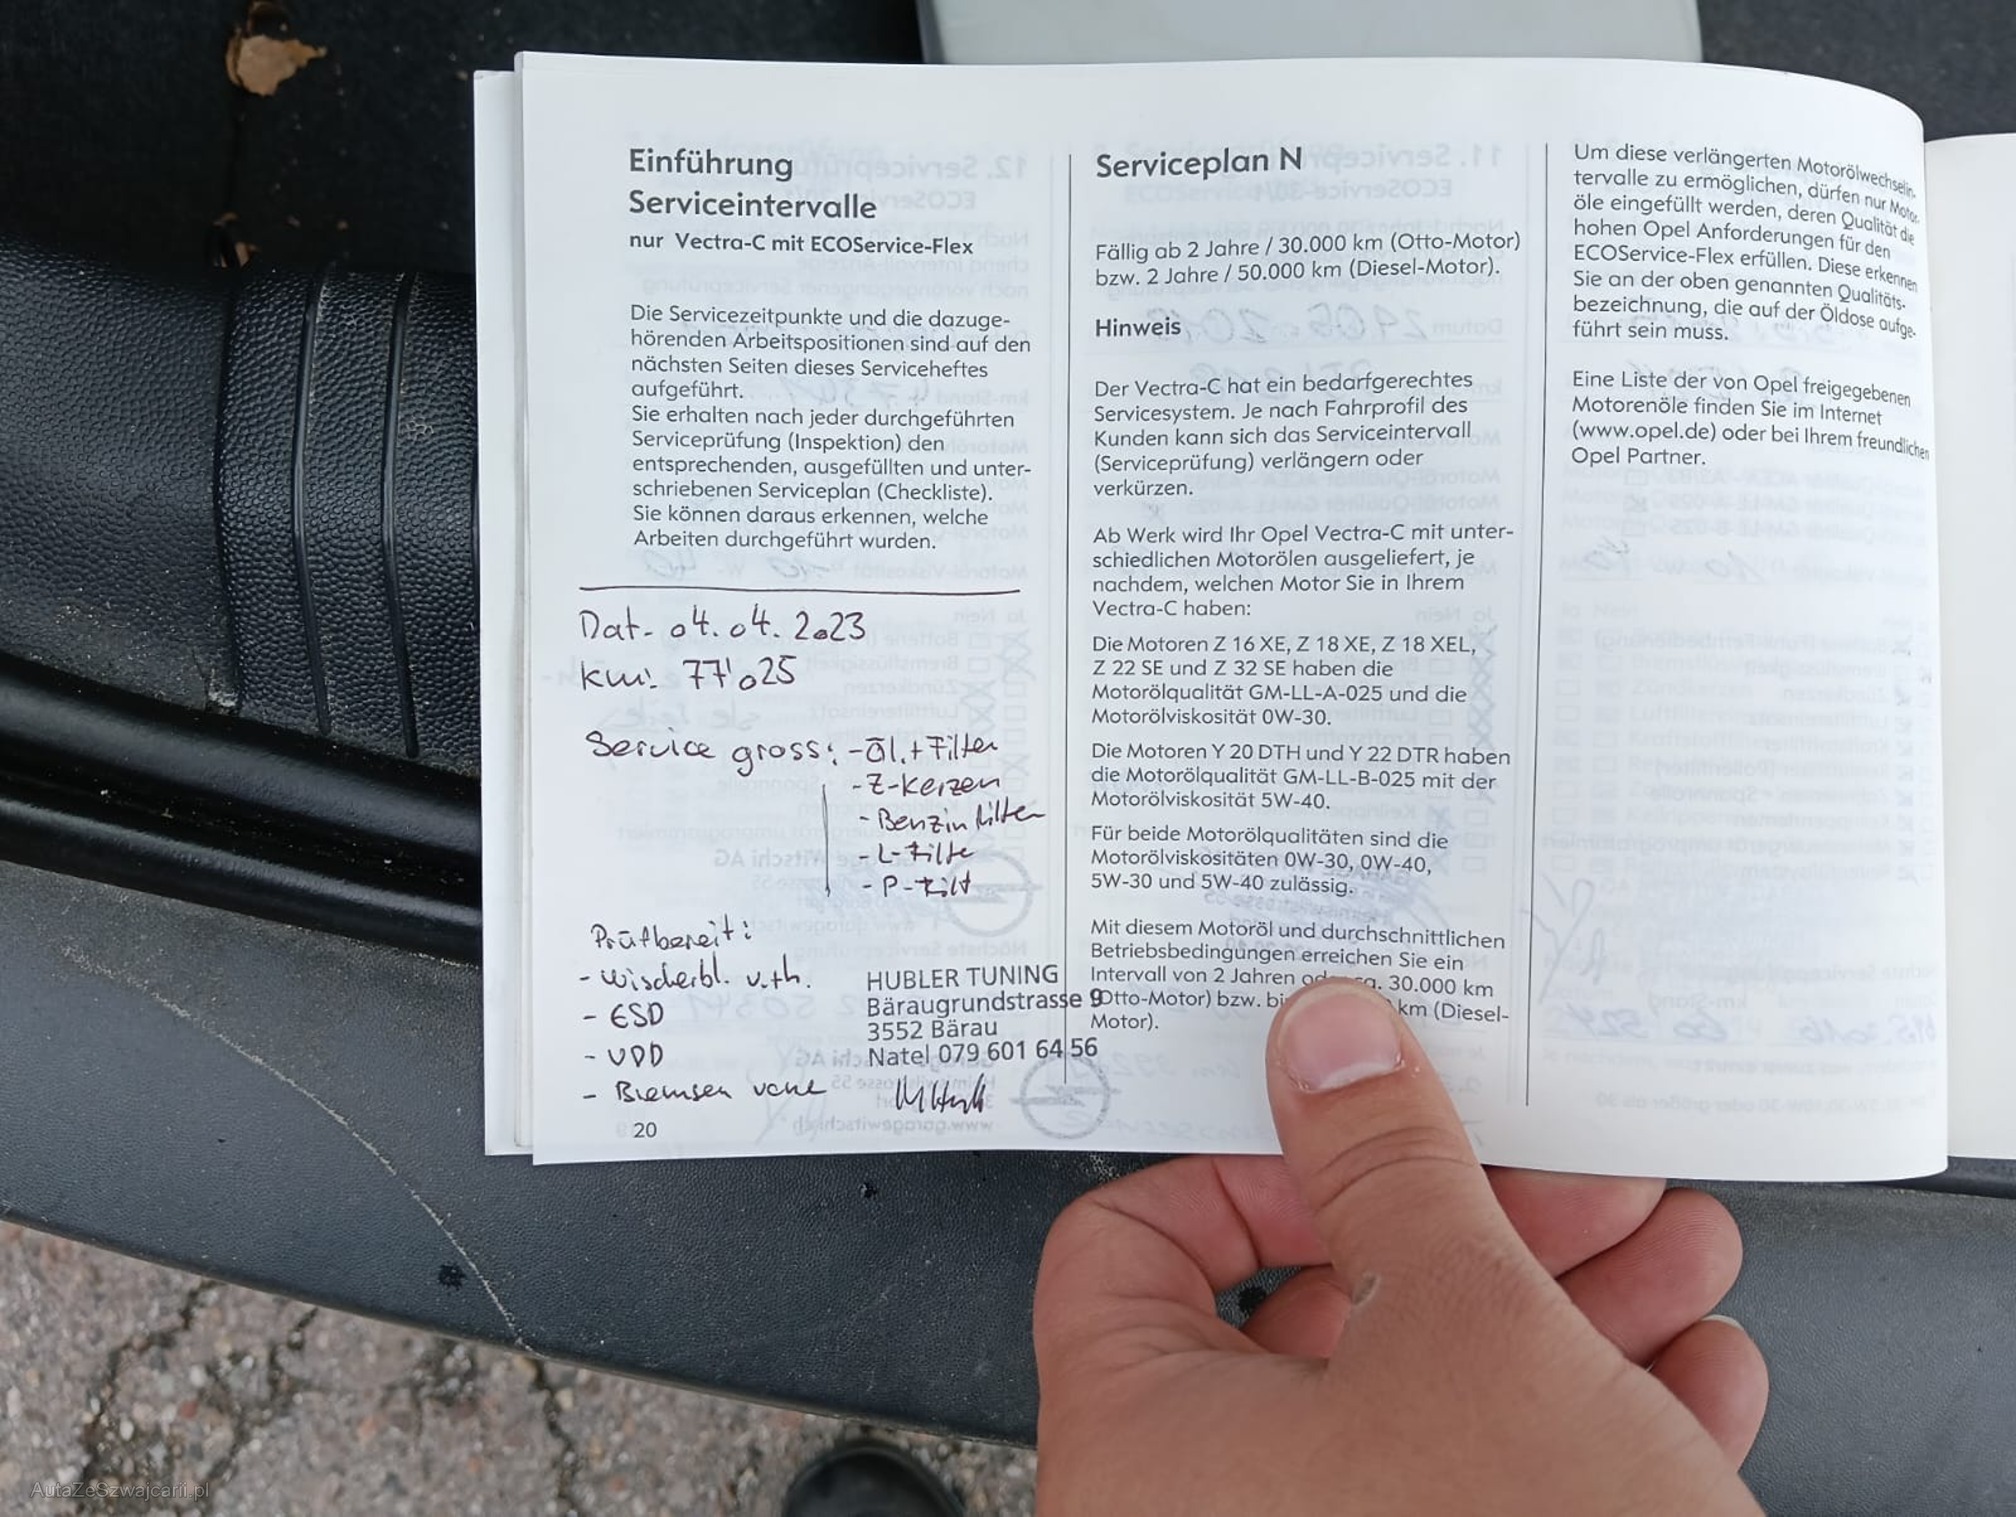 Einführung
Serviceintervalle
nur Vectra-C mit ECOService-Flex
Die Servicezeitpunkte und die dazuge-
hörenden Arbeitspositionen sind auf den
nächsten Seiten dieses Serviceheftes
aufgeführt.
Sie erhalten nach jeder durchgeführten
Serviceprüfung (Inspektion) den
entsprechenden, ausgefüllten und unter-
schriebenen Serviceplan (Checkliste).
Sie können daraus erkennen, welche
Arbeiten durchgeführt wurden.
Dat. 04.04.2023
km: 77'025
Service gross: - Öl.+Filter
- Z-Kerzen
- Benzinfilter
- L-Filte
- P-Filt
Prüfbereit:
- Wischerbl. v.+h.
- ESD
- VDD
- Bremsen
HUBLER TUNING
Bäraugrundstrasse 9
3552 Bärau
Natel 079 601 64 56
20
Serviceplan N
Fällig ab 2 Jahre / 30.000 km (Otto-Motor)
bzw. 2 Jahre / 50.000 km (Diesel-Motor).
Hinweis
Der Vectra-C hat ein bedarfgerechtes
Servicesystem. Je nach Fahrprofil des
Kunden kann sich das Serviceintervall
(Serviceprüfung) verlängern oder
verkürzen.
Ab Werk wird Ihr Opel Vectra-C mit unter-
schiedlichen Motorölen ausgeliefert, je
nachdem, welchen Motor Sie in Ihrem
Vectra-C haben:
Die Motoren Z 16 XE, Z 18 XE, Z 18 XEL,
Z 22 SE und Z 32 SE haben die
Motorölqualität GM-LL-A-025 und die
Motorölviskosität 0W-30.
Die Motoren Y 20 DTH und Y 22 DTR haben
die Motorölqualität GM-LL-B-025 mit der
Motorölviskosität 5W-40.
Für beide Motorölqualitäten sind die
Motorölviskositäten 0W-30, 0W-40,
5W-30 und 5W-40 zulässig.
Mit diesem Motoröl und durchschnittlichen
Betriebsbedingungen erreichen Sie ein
Intervall von 2 Jahren 30.000 km
(Otto-Motor) bzw. km (Diesel-
Motor).
Um diese verlängerten Motorölwechselin-
tervalle zu ermöglichen, dürfen nur Motor-
öle eingefüllt werden, deren Qualität die
hohen Opel Anforderungen für den
ECOService-Flex erfüllen. Diese erkennen
Sie an der oben genannten Qualitäts-
bezeichnung, die auf der Öldose aufge-
führt sein muss.
Eine Liste der von Opel freigegebenen
Motorenöle finden Sie im Internet
(www.opel.de) oder bei Ihrem freundlichen
Opel Partner.
AutaZeSzwajcarii.pl